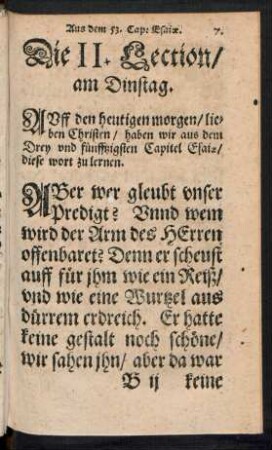 Aus dem 53. Cap: Esaiæ. 7.
Die II. Lection/
am Dinstag.
AUff den heutigen morgen/ lie-
ben Christen/ haben wir aus dem
Drey vnd fünfftzigsten Capitel Esaiæ/
diese wort zu lernen.
ABer wer gleubt vnser
Predigt? Vnnd wem
wird der Arm des HErren
offenbaret? Denn er scheust
auff für jhm wie ein Reiß/
vnd wie eine Wurtzel aus
dürrem erdreich. Er hatte
keine gestalt noch schöne/
wir sahen jhn/ aber da war
B ij keine